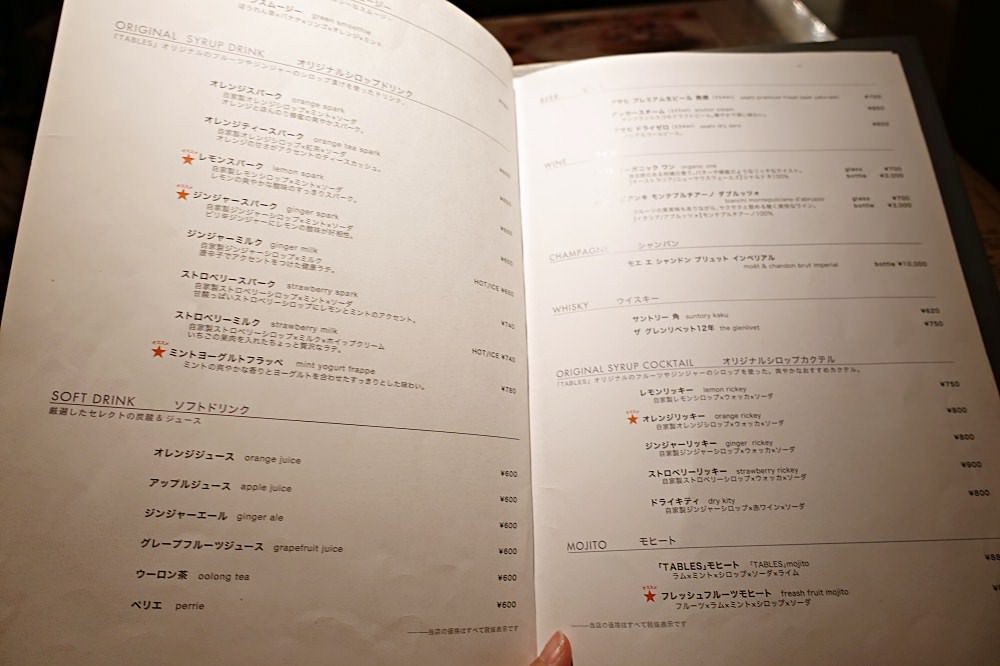 green smoothie
ほうれん草×バナナ×リンゴ×オレンジ×ミント
ORIGINAL SYRUP DRINK オリジナルシロップドリンク
「TABLES」オリジナルのフルーツやジンジャーのシロップ漬けを使ったドリンク。
オレンジスパーク orange spark
自家製オレンジシロップ×ミント×ソーダ
オレンジとほんのり蜂蜜の爽やかスパーク。
オレンジティースパーク orange tea spark
自家製オレンジシロップ×紅茶×ソーダ
オレンジの甘さがアクセントのティースカッシュ。
レモンスパーク lemon spark
自家製レモンシロップ×ミント×ソーダ
レモンの爽やかな酸味のすっきりスパーク。
ジンジャースパーク ginger spark
自家製ジンジャーシロップ×ミント×ソーダ
ピリ辛ジンジャーにレモンの酸味が好相性。
ジンジャーミルク ginger milk
自家製ジンジャーシロップ×ミルク
唐辛子でアクセントをつけた健康ラテ。
HOT/ICE ¥680
ストロベリースパーク strawberry spark
自家製ストロベリーシロップ×ミント×ソーダ
甘酸っぱいストロベリーシロップにレモンとミントのアクセント。
¥740
ストロベリーミルク strawberry milk
自家製ストロベリーシロップ×ミルク×ホイップクリーム
いちごの果肉を入れたちょっと贅沢なラテ。
HOT/ICE ¥740
オススメ
ミントヨーグルトフラッペ mint yogurt frappe
ミントの爽やかな香りとヨーグルトを合わせたすっきりとした味わい。
¥780
SOFT DRINK ソフトドリンク
厳選したセレクトの炭酸&ジュース
オレンジジュース orange juice ¥600
アップルジュース apple juice ¥600
ジンジャーエール ginger ale ¥600
グレープフルーツジュース grapefruit juice ¥600
ウーロン茶 oolong tea ¥600
ペリエ perrie ¥600
当店の価格はすべて税抜表示です
BEER
アサヒ プレミアム生ビール
アンカースチーム
アサヒ ドライゼロ asahi dry zero
WINE
organic one
glass ¥700
bottle ¥3,000
モンテプルチアーノ ダブルッツォ
bianchi montepulciano d'abruzzo
glass ¥700
bottle ¥3,000
CHAMPAGNE シャンパン
モエ エ シャンドン ブリュット インペリアル
moët & chandon brut imperial bottle ¥10,000
WHISKY ウイスキー
サントリー 角 suntory kaku ¥620
ザ グレンリベット12年 the glenlivet ¥750
ORIGINAL SYRUP COCKTAIL オリジナルシロップカクテル
「TABLES」オリジナルのフルーツやジンジャーのシロップを使った、爽やかなおすすめカクテル。
レモンリッキー lemon rickey ¥750
自家製レモンシロップ×ウォッカ×ソーダ
オススメ
オレンジリッキー orange rickey ¥800
自家製オレンジシロップ×ウォッカ×ソーダ
ジンジャーリッキー ginger rickey ¥800
自家製ジンジャーシロップ×ウォッカ×ソーダ
ストロベリーリッキー strawberry rickey ¥900
自家製ストロベリーシロップ×ウォッカ×ソーダ
ドライキティ dry kity ¥800
自家製ジンジャーシロップ×赤ワイン×ソーダ
MOJITO モヒート
「TABLES」モヒート 「TABLES」mojito
ラム×ミント×シロップ×ソーダ×ライム
オススメ
フレッシュフルーツモヒート freash fruit mojito
フルーツ×ラム×ミント×シロップ×ソーダ
当店の価格はすべて税抜表示です